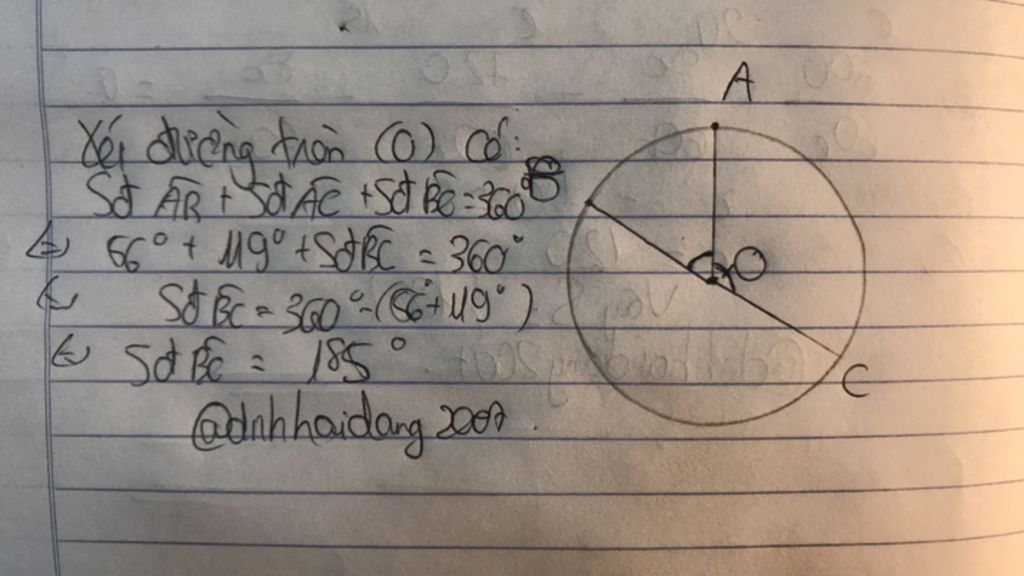 Xét đường tròn (O) có:
Sđ AB + Sđ AC + Sđ BC = 360°
<=> 66° + 119° + Sđ BC = 360°
<=> Sđ BC = 360° - (56° + 119°)
<=> Sđ BC = 185°
@dnhhaidang2007.
A
B
O
C